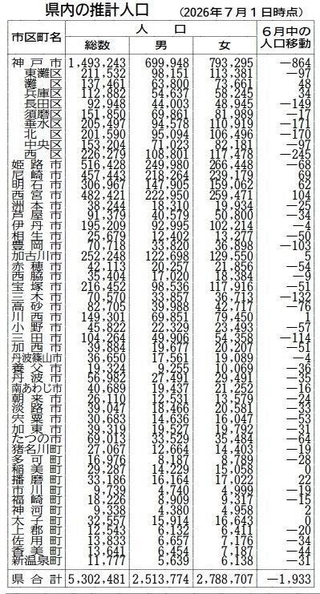 県内の推計人口 (2026年7月1日時点)
市区町名 人口 6月中の人口移動
総数 男 女
神戸市 1,493,243 699,948 793,295 −864
東灘区 211,532 98,151 113,381 −97
灘区 137,461 63,800 73,661 48
兵庫区 112,882 54,637 58,245 34
長田区 92,948 44,003 48,945 −149
須磨区 151,850 69,861 81,989 −17
垂水区 205,497 94,578 110,919 −171
北区 201,590 95,094 106,496 −170
中央区 153,204 71,023 82,181 −97
西区 226,279 108,801 117,478 −245
姫路市 516,428 249,980 266,448 −68
尼崎市 457,443 218,264 239,179 69
明石市 306,967 147,905 159,062 62
西宮市 482,421 222,950 259,471 104
洲本市 38,244 18,310 19,934 −25
芦屋市 91,379 40,579 50,800 −34
伊丹市 195,209 92,995 102,214 −4
相生市 25,679 12,402 13,277 −50
豊岡市 70,718 33,820 36,898 −103
加古川市 252,248 122,698 129,550 5
赤穂市 42,113 20,257 21,856 −54
西脇市 35,404 17,020 18,384 −9
宝塚市 216,452 98,536 117,916 −51
三木市 70,570 33,857 36,713 −132
高砂市 82,705 39,988 42,717 −76
川西市 149,301 69,851 79,450 1
小野市 45,822 22,329 23,493 −57
三田市 104,264 49,906 54,358 −114
加西市 39,884 19,677 20,207 −51
丹波篠山市 36,650 17,561 19,089 −4
養父市 19,324 9,255 10,069 −36
丹波市 56,982 27,491 29,491 −35
南あわじ市 40,689 19,437 21,252 −16
朝来市 26,110 12,531 13,579 −24
淡路市 39,047 18,466 20,581 −33
宍粟市 30,683 14,636 16,047 −53
加東市 39,319 19,527 19,792 −31
たつの市 69,013 33,529 35,484 −64
猪名川町 27,067 12,664 14,403 −19
多可町 16,976 8,187 8,789 −28
稲美町 29,287 14,229 15,058 0
播磨町 33,186 16,164 17,022 22
市川町 9,739 4,740 4,999 −19
福崎町 18,226 8,909 9,317 −15
神河町 9,338 4,380 4,958 2
太子町 32,557 15,914 16,643 0
上郡町 12,543 6,132 6,411 −20
佐用町 13,833 6,657 7,176 −34
香美町 13,641 6,454 7,187 −44
新温泉町 11,777 5,639 6,138 −31
県合計 5,302,481 2,513,774 2,788,707 −1,933